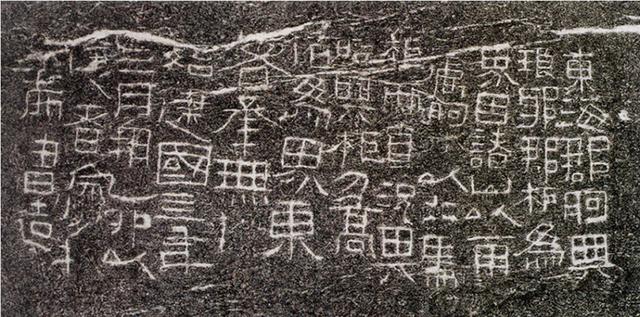 東海郡朐與
琅邪郡柜為
界因諸山以南
屬朐水以北屬
柜西直況其
朐與柜分高
為界東
各承無
始建國四年
四月朔乙卯以
使者徐州
書造